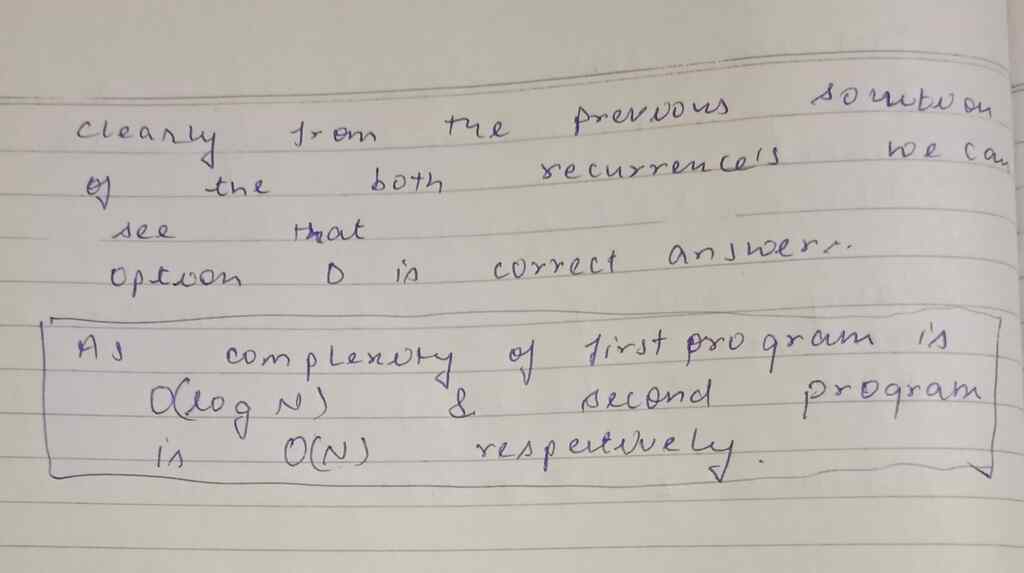 clearly from the previous solution
of the both recurrence's we can
see that
option D is correct answer..
As complexity of first program is
O(log N) & second program
is O(N) respectively.